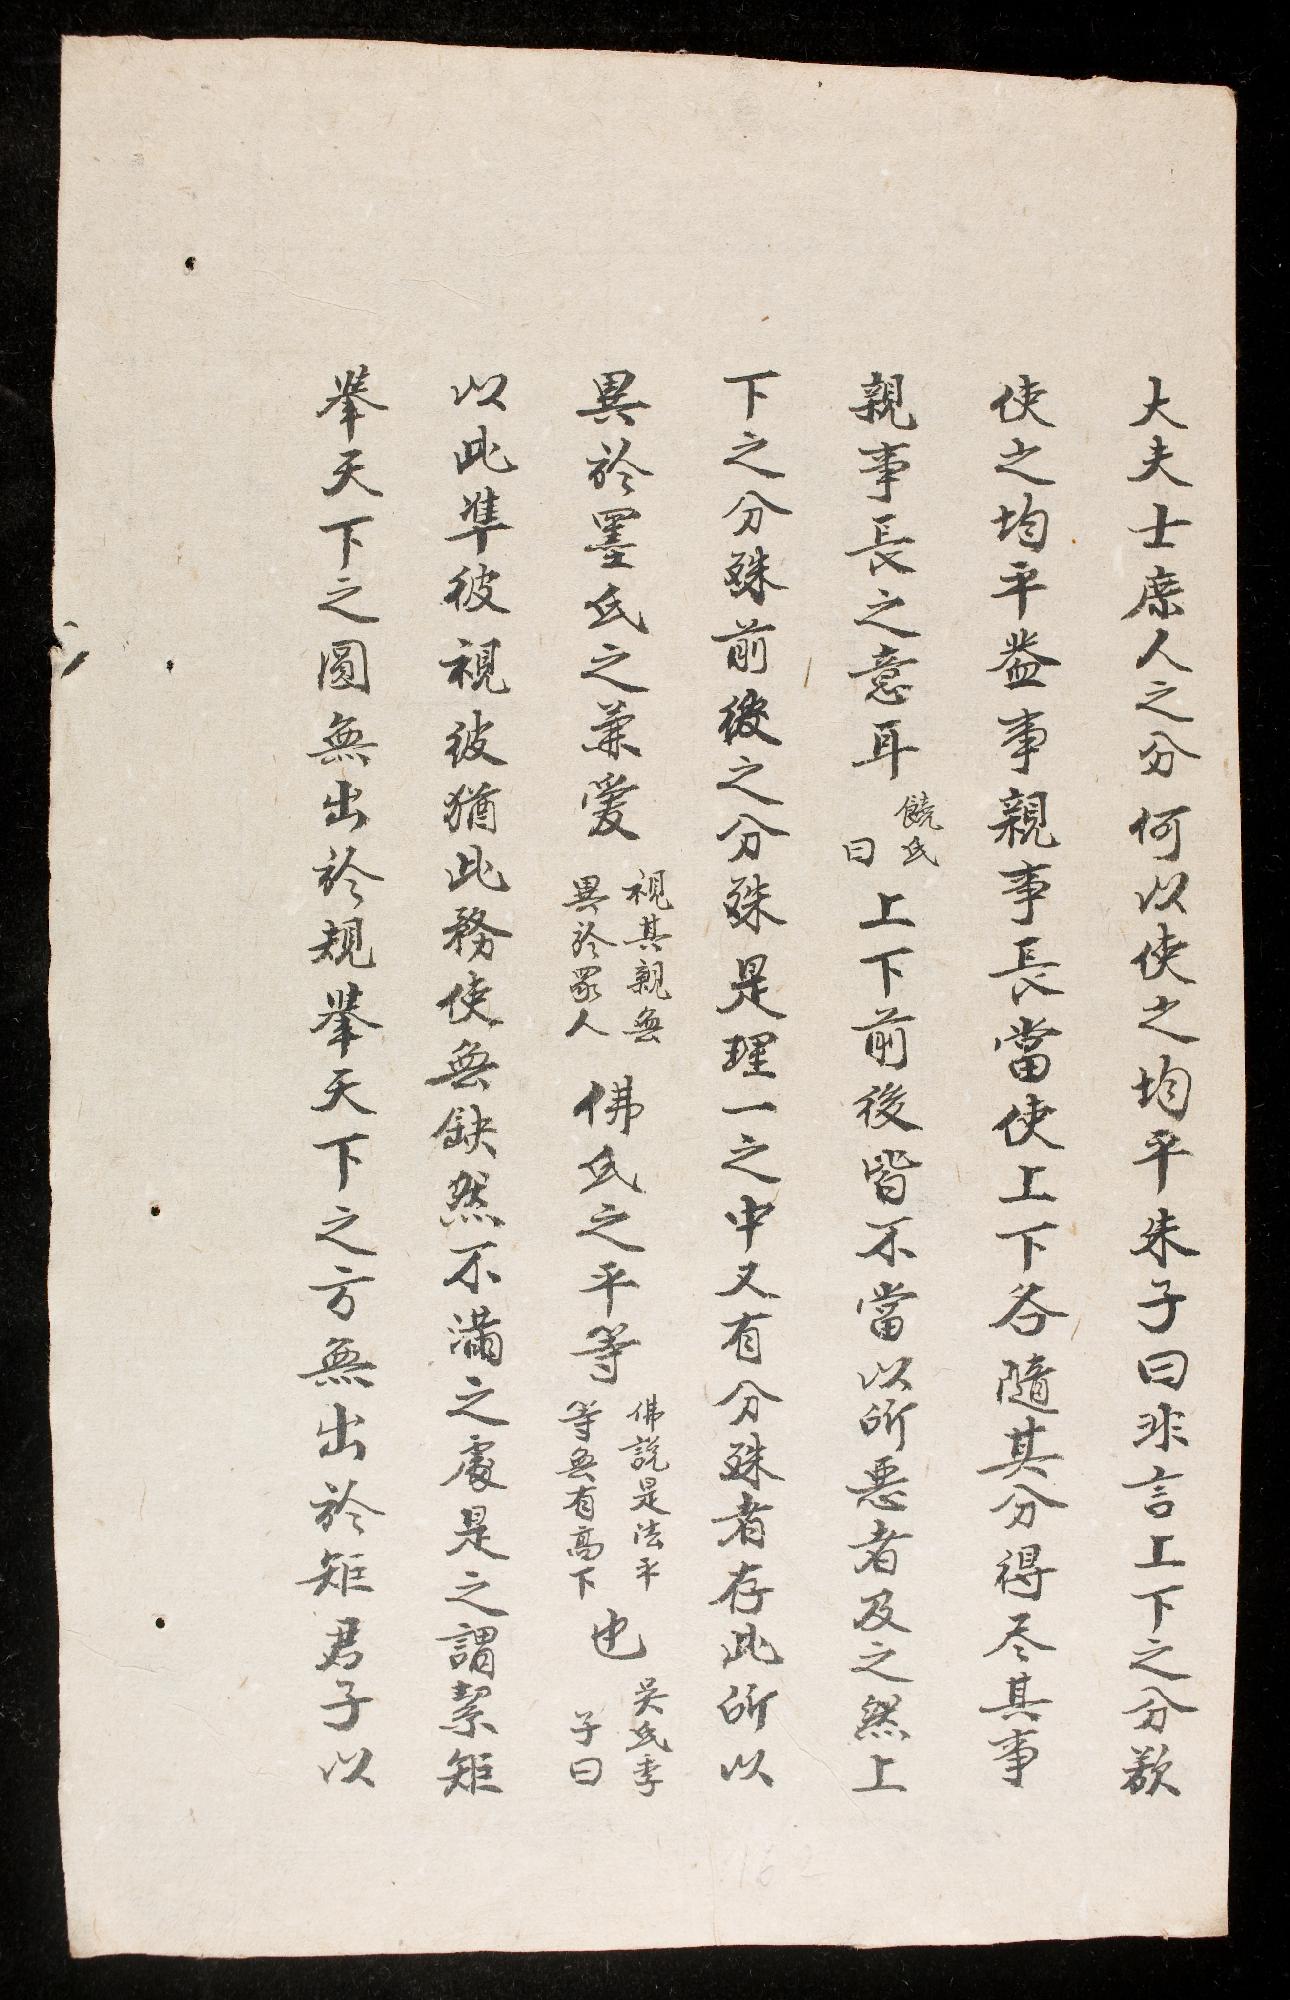 大夫士庶人之分何以使之均平朱子曰非言上下之分欲
使之均平盖事親事長當使上下各隨其分得尽其事
親事長之意耳饒氏曰上下前後皆不當以所惡者及之然上
下之分殊前後之分殊是理一之中又有分殊者存此所以
異於墨氏之兼愛視其親無異於眾人佛氏之平等佛說是法平等無有高下也吳氏季子曰
以此準彼視彼猶此務使無缺然不滿之處是之謂絜矩
舉天下之圓無出於規舉天下之方無出於矩君子以
162